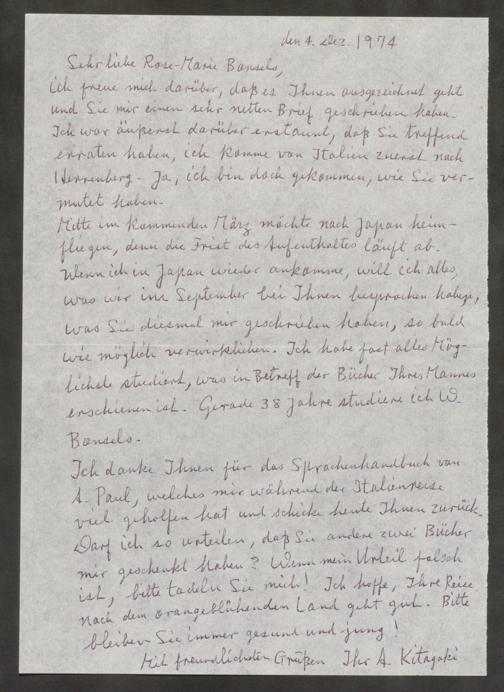 den 4. Dez. 1974
Sehr liebe Rose-Marie Bonsels,
ich freue mich darüber, daß es Ihnen ausgezeichnet geht
und Sie mir einen sehr netten Brief geschrieben haben.
Ich war äußerst darüber erstaunt, daß Sie treffend
erraten haben, ich komme von Italien zuerst nach
Herrenberg. Ja, ich bin doch gekommen, wie Sie ver-
mutet haben.
Mitte im kommenden März möchte nach Japan heim-
fliegen, denn die Frist des Aufenthaltes läuft ab.
Wenn ich in Japan wieder ankomme, will ich alles,
was wir im September bei Ihnen besprochen haben,
was Sie diesmal mir geschrieben haben, so bald
wie möglich verwirklichen. Ich habe fast alles Mög-
lichste studiert, was in Betreff der Bücher Ihres Mannes
erschienen ist. Gerade 38 Jahre studiere ich W.
Bonsels.
Ich danke Ihnen für das Sprachenhandbuch von
A. Paul, welches mir während der Italienreise
viel geholfen hat und schicke heute Ihnen zurück.
Darf ich so urteilen, daß Sie andere zwei Bücher
mir geschenkt haben? Wenn mein Urteil falsch
ist, bitte tadeln Sie mich! Ich hoffe, Ihre Reise
nach dem orangeblühenden Land geht gut. Bitte
bleiben Sie immer gesund und jung!
Mit freundlichsten Grüßen Ihr A. Kitagaki